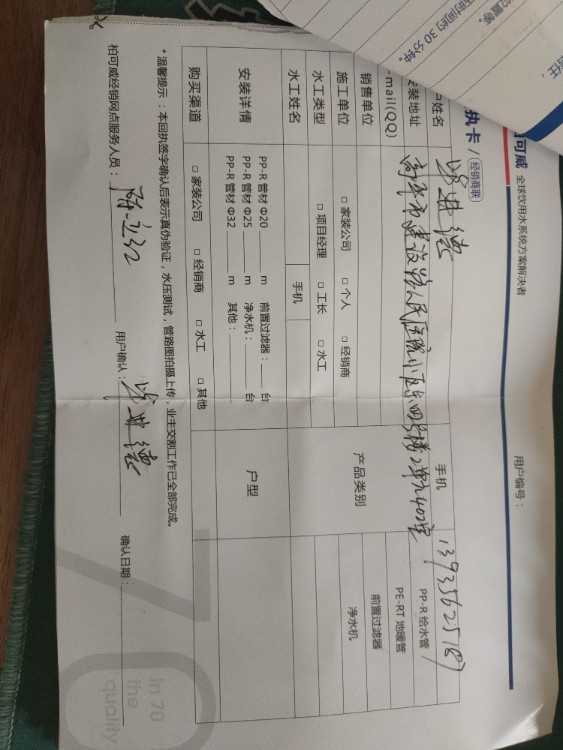 可威 全球饮用水系统方案解决者
用户编号：
执卡 / 经销商联
户姓名
井德
手机
13935625187
安装地址
高平市建设路人民医院小区东四号楼2单元402室
-mail(QQ)
销售单位
施工单位
□ 家装公司 □ 个人 □ 经销商
水工类型
□ 项目经理 □ 工长 □ 水工
水工姓名
手机
产品类别
PP-R 给水管
PE-RT 地暖管
前置过滤器
净水机
安装详情
PP-R 管材 Φ20 m 前置过滤器： 台
PP-R 管材 Φ25 m 净水机： 台
PP-R 管材 Φ32 m 其他：
户型
购买渠道
□ 家装公司 □ 经销商 □ 水工 □ 其他
* 温馨提示：本回执签字确认后表示真伪验证，水压测试，管路图拍摄上传，业主交割工作已全部完成。
柏可威经销网点服务人员：
用户确认： 井德
确认日期：
in 70
the
quality
70
位置等。
时间约 30 分钟。
责任，